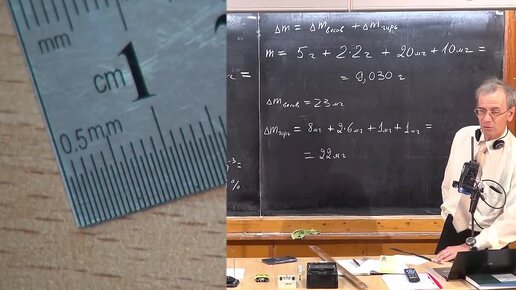 mm
cm 1
0.5mm
Δm = Δm весов + Δm гирь
m = 5г + 2·2г + 20мг + 10мг =
= 9,030 г
Δm весов = 23мг
Δm гирь = 8мг + 2·6мг + 1мг + 1мг =
= 22мг
=
-3
%